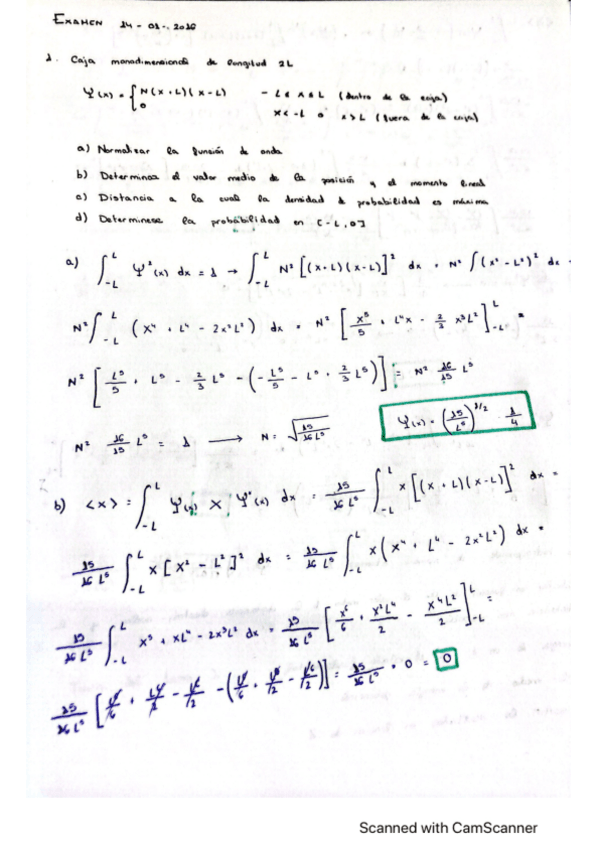 EXAMEN 14-01-2016
1. Caja monodimensional de longitud 2L
Ψ(x) = { N(x+L)(x-L) -L ≤ x ≤ L (dentro de la caja)
0 x<-L o x>L (fuera de la caja)
a) Normalizar la función de onda
b) Determinar el valor medio de la posición y el momento lineal
c) Distancia a la cual la densidad d probabilidad es máxima
d) Determinese la probabilidad en [-L,0]
a) ∫_{-L}^{L} Ψ²(x) dx = 1 → ∫_{-L}^{L} N² [(x+L)(x-L)]² dx = N² ∫(x²-L²)² dx =
N² ∫_{-L}^{L} (x⁴ + L⁴ - 2x²L²) dx = N² [x⁵/5 + L⁴x - 2/3 x³L²]_{-L}^{L} =
N² [L⁵/5 + L⁵ - 2/3 L⁵ - (-L⁵/5 - L⁵ + 2/3 L⁵)] = N² 16/15 L⁵
N² 16/15 L⁵ = 1 → N = √(15/16L⁵) Ψ(x) = (15/L⁵)^{1/2} 1/4
b) <x> = ∫_{-L}^{L} Ψ(x) X Ψ*(x) dx = 15/16L⁵ ∫_{-L}^{L} x[(x+L)(x-L)]² dx =
15/16L⁵ ∫_{-L}^{L} x[x²-L²]² dx = 15/16L⁵ ∫_{-L}^{L} x(x⁴ + L⁴ - 2x²L²) dx =
15/16L⁵ ∫_{-L}^{L} x⁵ + xL⁴ - 2x³L² dx = 15/16L⁵ [x⁶/6 + x²L⁴/2 - x⁴L²/2]_{-L}^{L} =
15/16L⁵ [L⁶/6 + L⁶/2 - L⁶/2 - (L⁶/6 + L⁶/2 - L⁶/2)] = 15/16L⁵ · 0 = 0
Scanned with CamScanner